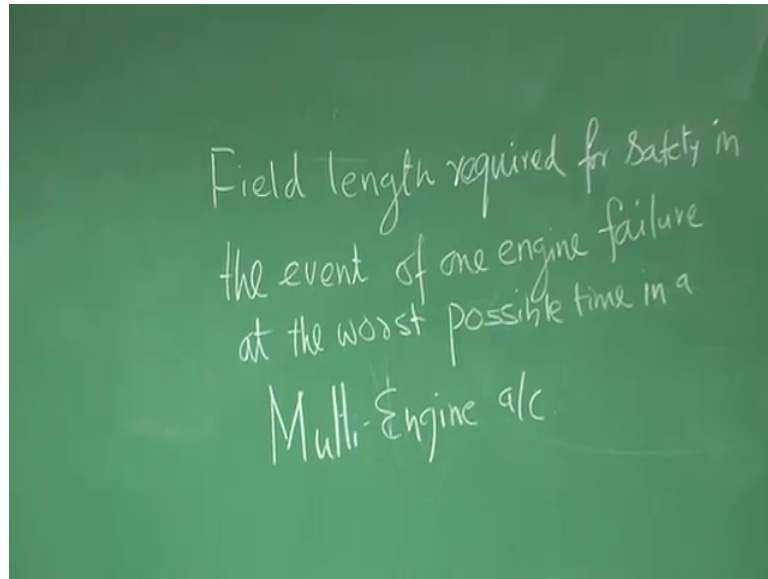 Field length required for safety in
the event of one engine failure
at the worst possible time in a
Multi-Engine a/c.